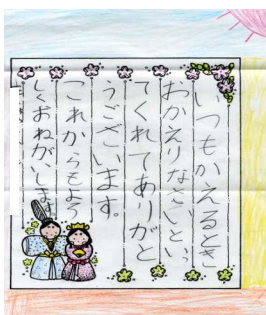 いつもかえるとき
おかえりなさいといっ
てくれてありがと
うございます。
これからもよろ
しくおねがいしま